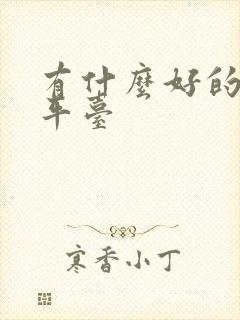 有什麼好的
平臺
寒香小丁